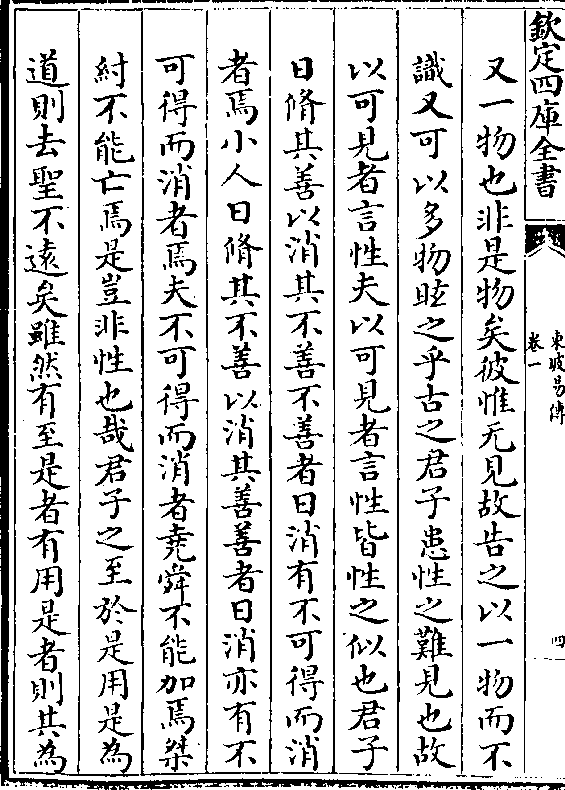 欽定四庫全書
東坡易傳
卷一
四
又一物也非是物矣彼惟无見故告之以一物而不
識又可以多物眩之乎古之君子患性之難見也故
以可見者言性夫以可見者言性皆性之似也君子
日脩其善以消其不善不善者日消有不可得而消
者焉小人日脩其不善以消其善善者日消亦有不
可得而消者焉夫不可得而消者堯舜不能加焉桀
紂不能亡焉是豈非性也哉君子之至於是用是為
道則去聖不遠矣雖然有至是者有用是者則其為